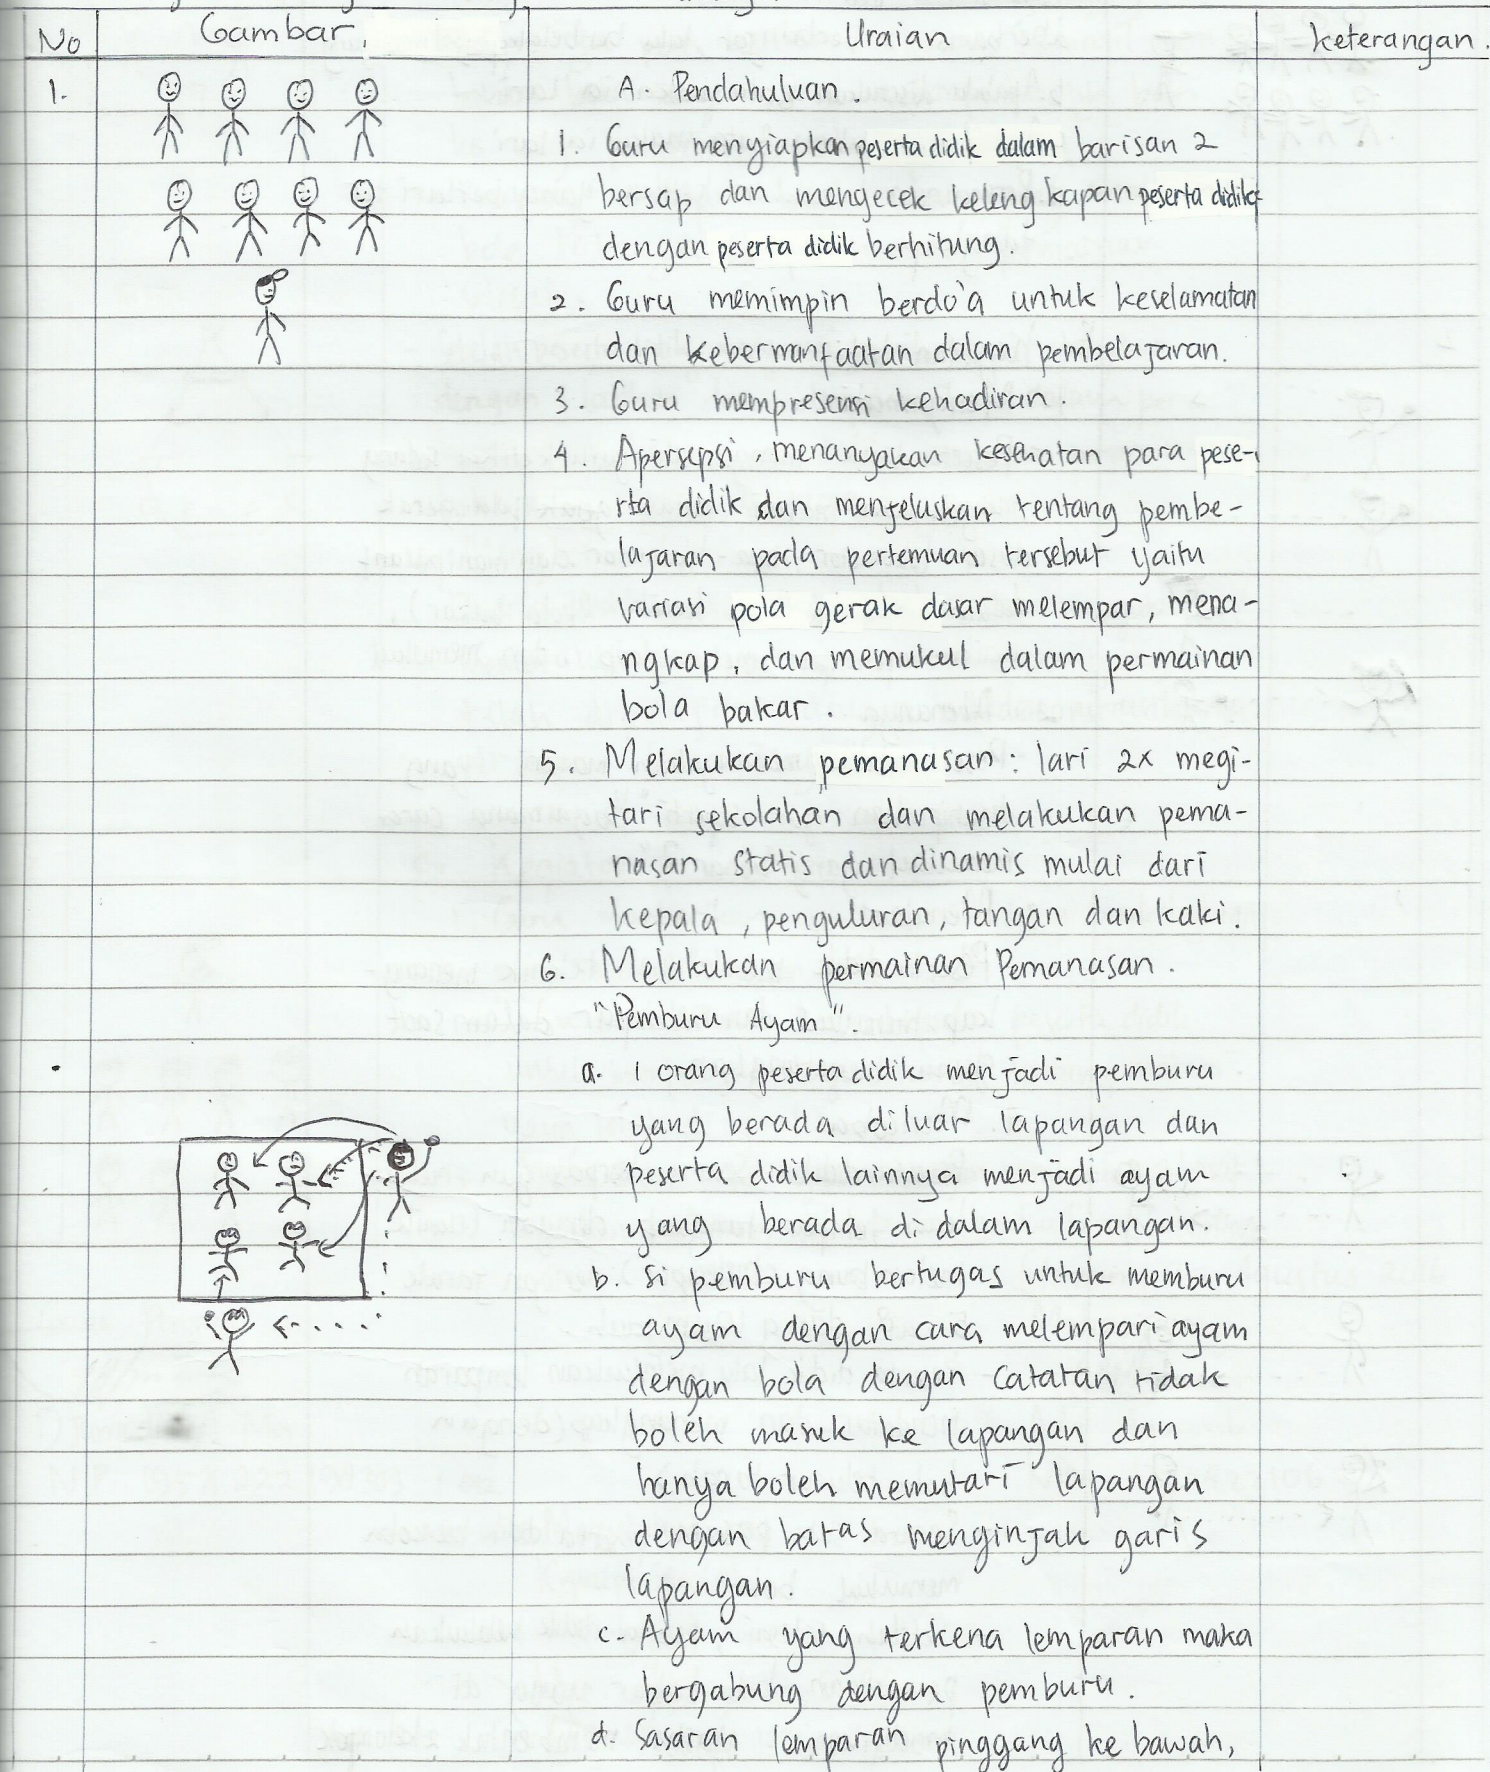 No Gambar. Uraian keterangan.
1. A. Pendahuluan.
1. Guru menyiapkan peserta didik dalam barisan 2
bersap dan mengecek kelengkapan peserta didik
dengan peserta didik berhitung.
2. Guru memimpin berdo'a untuk keselamatan
dan kebermanfaatan dalam pembelajaran.
3. Guru mempresensi kehadiran.
4. Apersepsi, menanyakan kesehatan para pese-
rta didik dan menjelaskan tentang pembe-
lajaran pada pertemuan tersebut yaitu
variasi pola gerak dasar melempar, mena-
ngkap, dan memukul dalam permainan
bola bakar.
5. Melakukan pemanasan: lari 2x megi-
tari sekolahan dan melakukan pema-
nasan statis dan dinamis mulai dari
kepala, penguluran, tangan dan kaki.
6. Melakukan permainan Pemanasan.
"Pemburu Ayam".
a. 1 orang peserta didik menjadi pemburu
yang berada diluar lapangan dan
peserta didik lainnya menjadi ayam
yang berada di dalam lapangan.
b. si pemburu bertugas untuk memburu
ayam dengan cara melempari ayam
dengan bola dengan catatan tidak
boleh masuk ke lapangan dan
hanya boleh memutari lapangan
dengan batas menginjak garis
lapangan.
c. Ayam yang terkena lemparan maka
bergabung dengan pemburu.
d. Sasaran lemparan pinggang ke bawah,